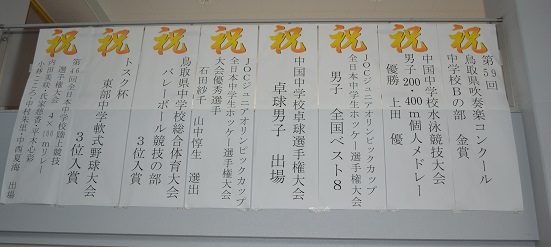 祝
第59回
鳥取県吹奏楽コンクール
中学校Bの部　金賞
祝
中国中学校水泳競技大会
男子200・400m個人メドレー
優勝　上田　優
祝
JOCジュニアオリンピックカップ
全日本中学生ホッケー選手権大会
男子　全国ベスト8
祝
中国中学校卓球選手権大会
卓球男子　出場
祝
JOCジュニアオリンピックカップ
全日本中学生ホッケー選手権大会
大会優秀選手
石田紗千　山中惇生　選出
祝
鳥取県中学校総合体育大会
バレーボール競技の部
3位入賞
祝
トスク杯
東部中学軟式野球大会
3位入賞
祝
第46回全日本中学校陸上競技
選手権大会　4×100mリレー
出場